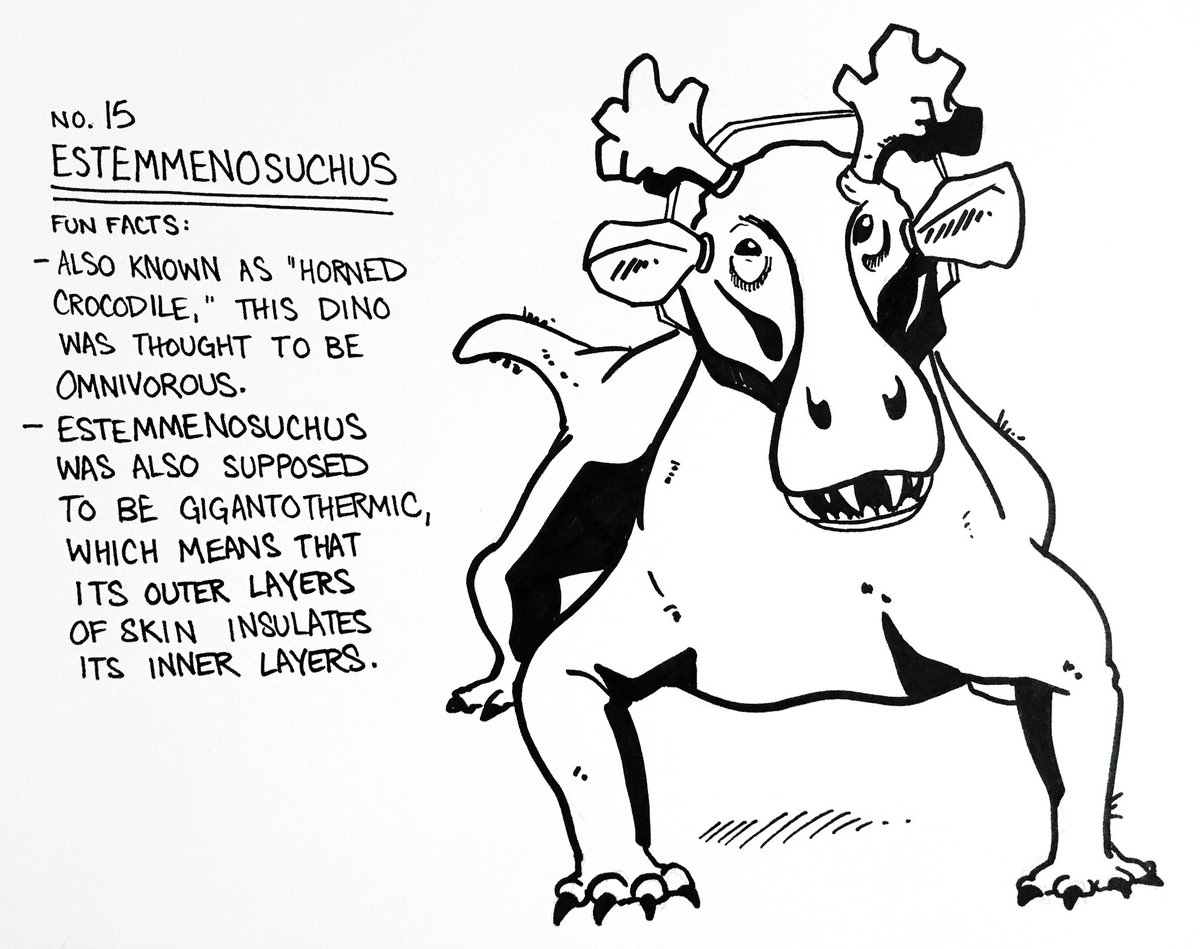 NO. 15
ESTEMMENOSUCHUS
FUN FACTS:
- ALSO KNOWN AS "HORNED
CROCODILE," THIS DINO
WAS THOUGHT TO BE
OMNIVOROUS.
- ESTEMMENOSUCHUS
WAS ALSO SUPPOSED
TO BE GIGANTOTHERMIC,
WHICH MEANS THAT
ITS OUTER LAYERS
OF SKIN INSULATES
ITS INNER LAYERS.